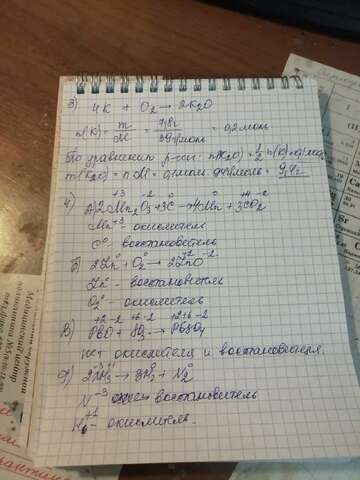 3) 4K + O₂ → 2K₂O
n(K) = m/M = 7,8г/39г/моль = 0,2 моль
По уравнению р-ии: n(K₂O) = 1/2 n(K) = 0,1 моль
m(K₂O) = n·M = 0,1 моль · 94г/моль = 9,4г
4) А) 2Mn₂⁺³O₃⁻² + 3C⁰ → 4Mn⁰ + 3C⁺⁴O₂⁻²
Mn⁺³ - окислитель
C⁰ - восстановитель
Б) 2Zn⁰ + O₂⁰ → 2Zn⁺²O⁻²
Zn⁰ - восстановитель
O₂⁰ - окислитель
В) Pb⁺²O⁻² + S⁺⁶O₃⁻² → Pb⁺²S⁺⁶O₄⁻²
нет окислителя и восстановителя.
2NH₃ → 3H₂⁰ + N₂⁰
N⁻³ восстановитель
H⁺¹ - окислитель.